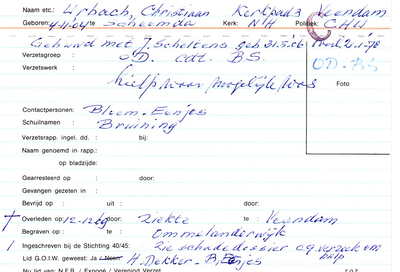 Naam etc.: Urbach, Christiaan Kerkpad 3 Veendam
Geboren: 4-11-04 te Scheemda Kerk: N.H. Politiek: C.H.U.
Gehuwd met J. Scheltens geb. 31.5.06
Verzetsgroep : O.D. cdt. B.S.
O.D.-B.S.
Verzetswerk :
hielp waar mogelijk was
Foto
Contactpersonen: Bloem-Eenjes
Schuilnaam : Bruining
Verzetsrapp. ingel. dd. : bij:
Naam genoemd in rapp.:
op bladzijde:
Gearresteerd op : door:
Gevangen gezeten in :
Bevrijd op : uit : door:
Overleden op: 12-12-69 door: Ziekte te : Veendam
Begraven op : te : Ommelanderwijk
Ingeschreven bij de Stichting 40/45: Zie schadedossier c.q. verzoek om hulp
Lid G.O.I.W. geweest: Ja / Neen H. Dekker - B. Eenjes
Nu lid van: N.F.R. / Expogé / Verenigd Verzet